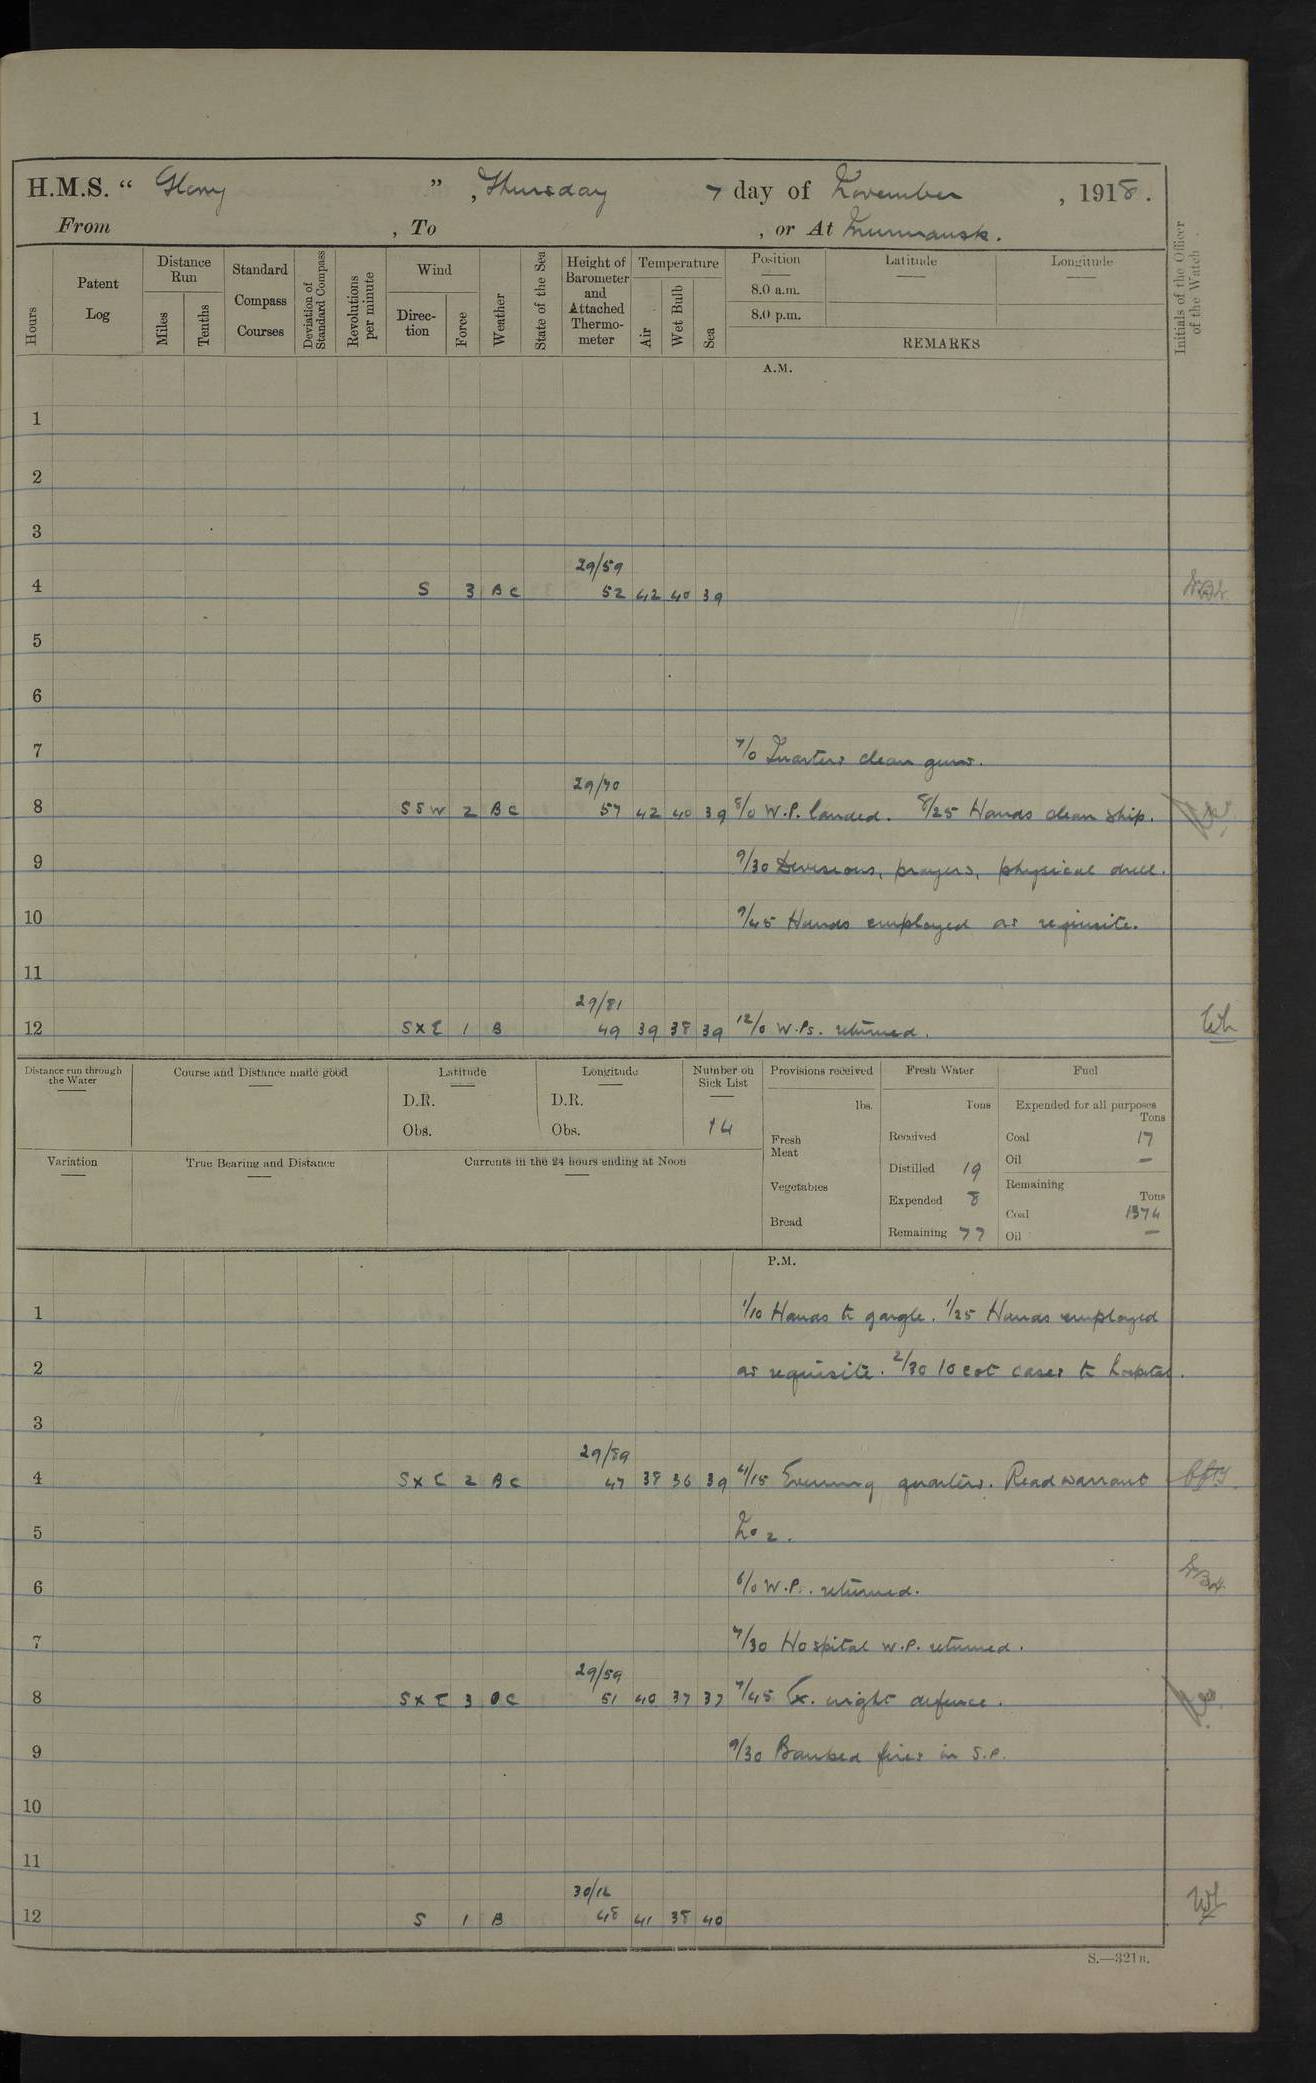 H.M.S. “ Glory ” , Thursday 7 day of November , 1918.
From , To , or At Murmansk.
Hours
Patent Log
Distance Run
Miles
Tenths
Standard Compass Courses
Deviation of Standard Compass
Revolutions per minute
Wind
Direc-tion
Force
Weather
State of the Sea
Height of Barometer and Attached Thermo-meter
Temperature
Air
Wet Bulb
Sea
Position
8.0 a.m.
8.0 p.m.
Latitude
Longitude
REMARKS
Initials of the Officer of the Watch
A.M.
1
2
3
29/59
4 S 3 BC 52 42 40 39
5
6
7 7/0 Quarters clean guns.
29/70
8 SSW 2 BC 57 42 40 39 8/0 W.P. landed. 8/25 Hands clean ship.
9 9/30 Divisions, prayers, physical drill.
10 9/45 Hands employed as requisite.
11
29/81
12 SXE 1 B 49 39 38 39 12/0 W.Ps. returned. WL
Distance run through the Water
Course and Distance made good
Latitude
D.R.
Obs.
Longitude
D.R.
Obs.
Number on Sick List
14
Variation
True Bearing and Distance
Currents in the 24 hours ending at Noon
Provisions received
lbs.
Fresh Meat
Vegetables
Bread
Fresh Water
Tons
Received
Distilled 19
Expended 8
Remaining 77
Fuel
Expended for all purposes
Tons
Coal 17
Oil —
Remaining
Tons
Coal 1374
Oil —
P.M.
1 1/10 Hands to gargle. 1/25 Hands employed
2 as requisite. 2/30 10 cot cases to hospital.
3
29/89
4 SXE 2 BC 47 38 36 39 4/15 Evening quarters. Read warrant
5 No 2.
6 6/0 W.P. returned.
7 7/30 Hospital W.P. returned.
29/59
8 SXE 3 OC 51 40 37 37 7/45 Ex. night defence.
9 9/30 Banked fires in S.P.
10
11
30/12
12 S 1 B 48 41 38 40 WL
S.—321B.